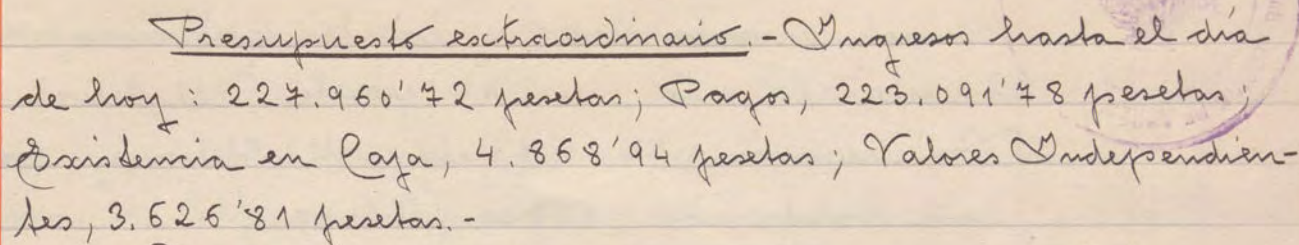 Presupuesto extraordinario.- Ingresos hasta el día
de hoy : 227.960'72 pesetas; Pagos, 223.091'78 pesetas;
Existencia en Caja, 4.868'94 pesetas; Valores Independien-
tes, 3.626'81 pesetas.-